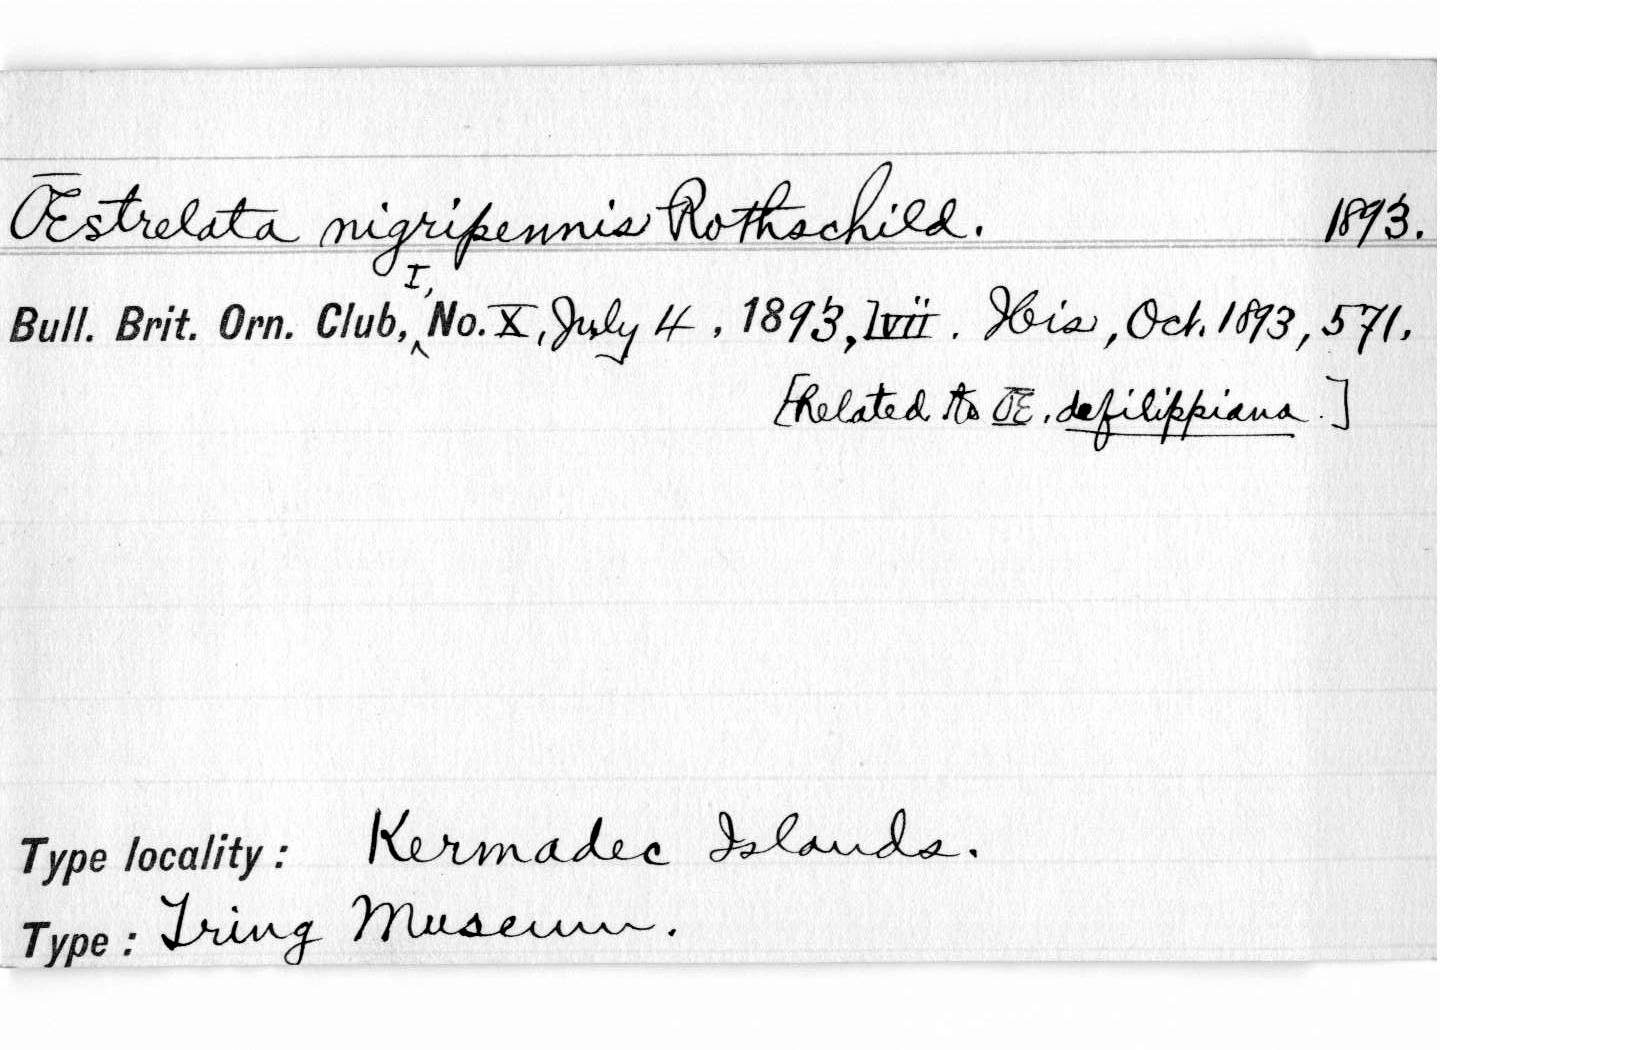 Œstrelata nigripennis Rothschild. 1893.
Bull. Brit. Orn. Club, I, No. X, July 4, 1893, lvii. Ibis, Oct. 1893, 571.
[Related to Œ. defilippiana.]
Type locality: Kermadec Islands.
Type: Tring Museum.